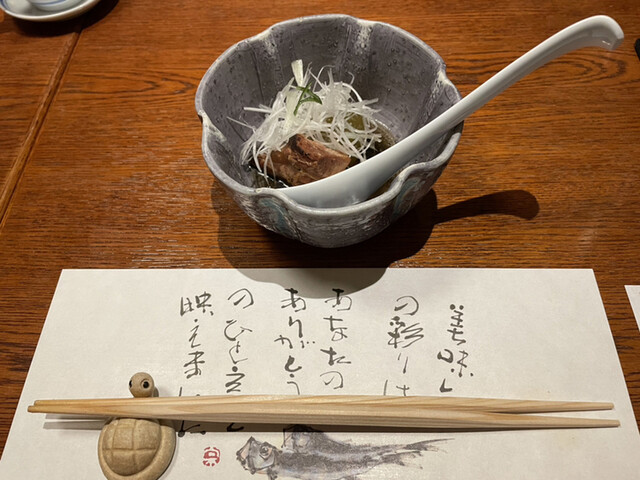 美味し
の彩りは
あなたの
ありがとう
のひと言
映えま